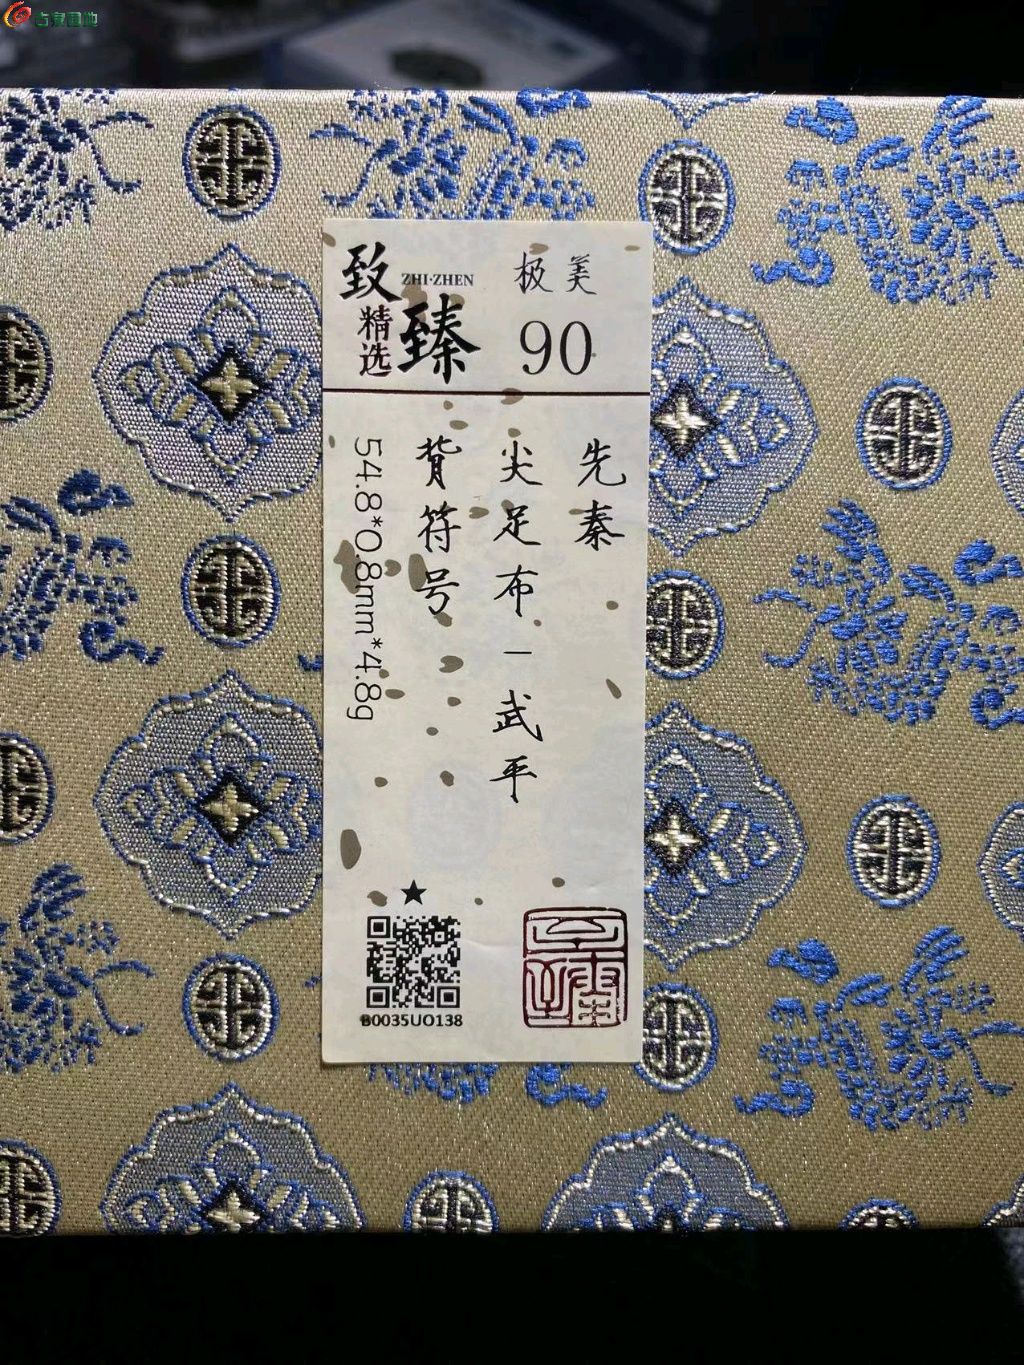 古泉园地
致臻
ZHI·ZHEN
精选
极美
90
先秦
尖足布-武平
背符号
54.8*0.8mm*4.8g
B0035UO138